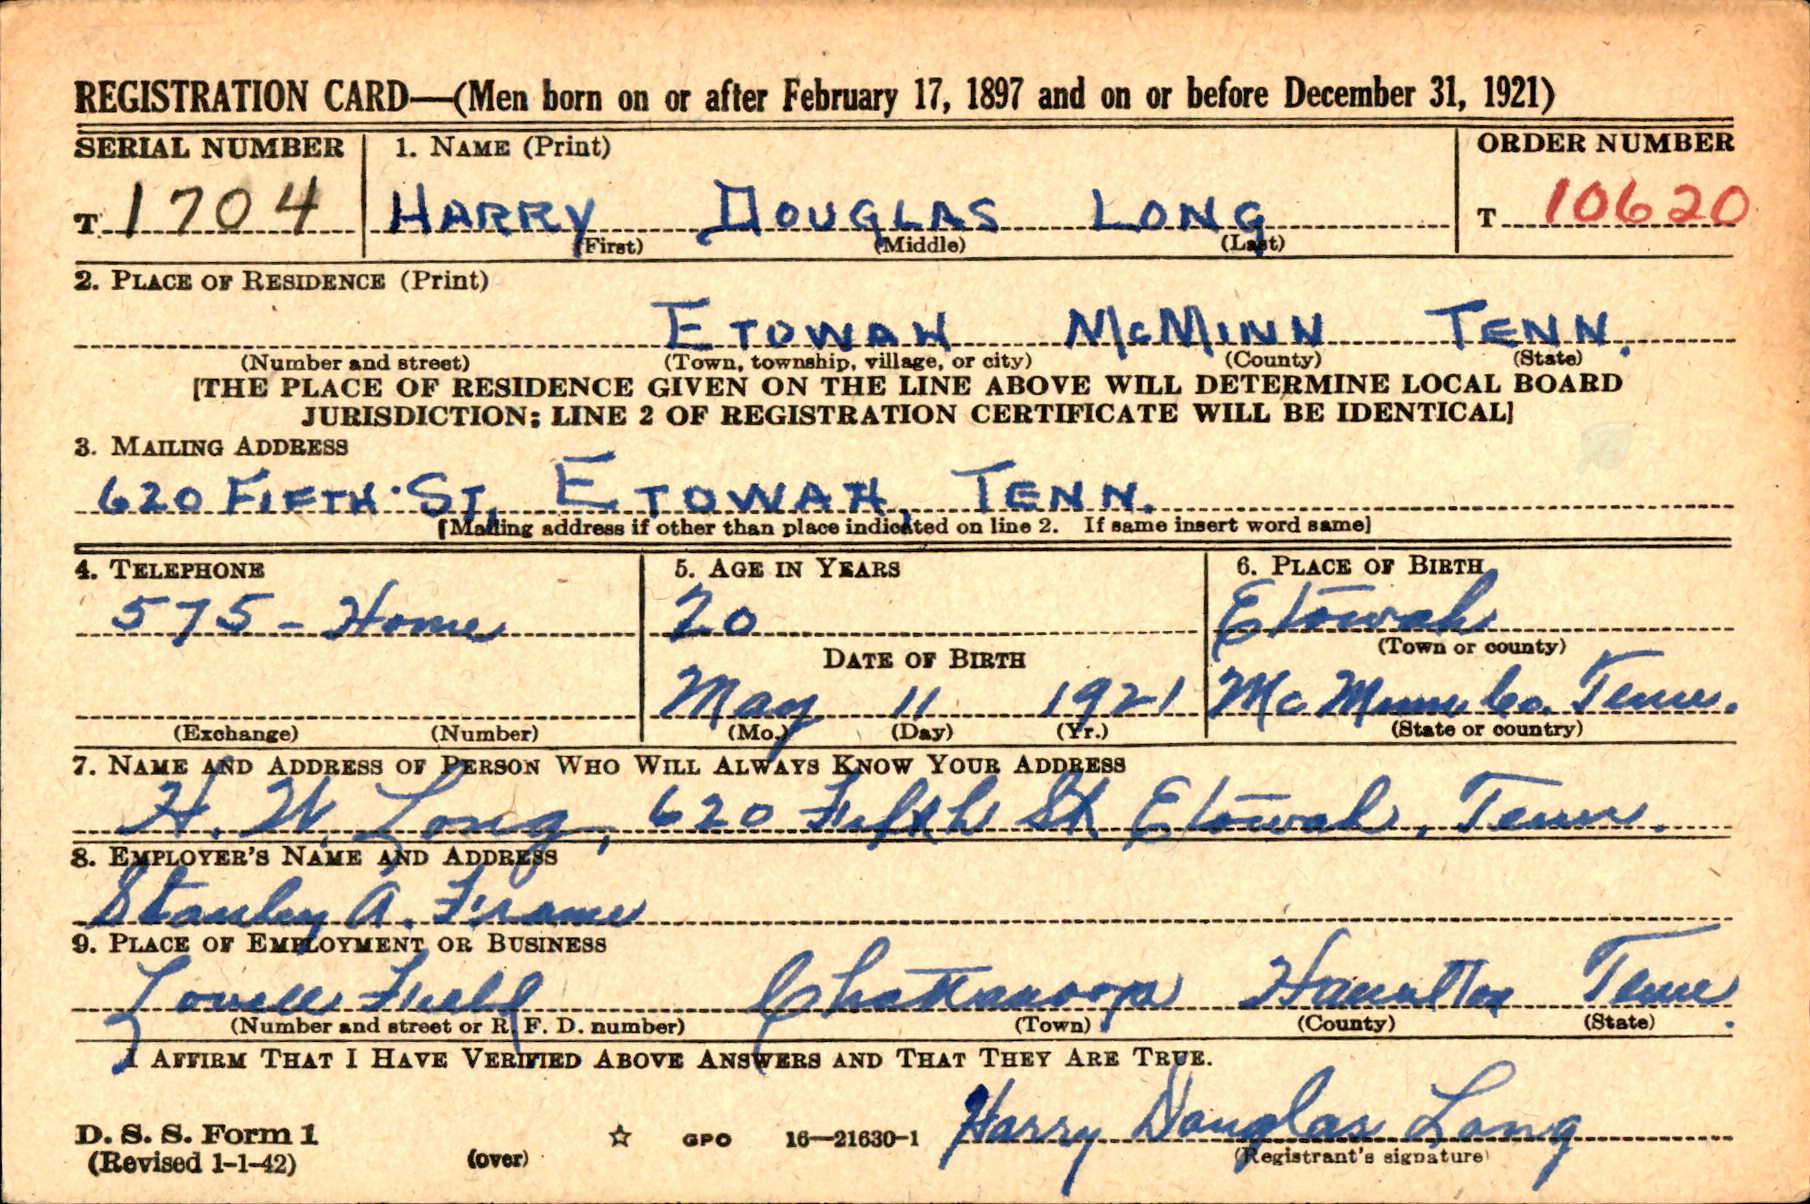 REGISTRATION CARD—(Men born on or after February 17, 1897 and on or before December 31, 1921)
SERIAL NUMBER 1. NAME (Print) ORDER NUMBER
T 1704 HARRY DOUGLAS LONG T 10620
(First) (Middle) (Last)
2. PLACE OF RESIDENCE (Print)
ETOWAH McMINN TENN.
(Number and street) (Town, township, village, or city) (County) (State)
[THE PLACE OF RESIDENCE GIVEN ON THE LINE ABOVE WILL DETERMINE LOCAL BOARD
JURISDICTION; LINE 2 OF REGISTRATION CERTIFICATE WILL BE IDENTICAL]
3. MAILING ADDRESS
620 FIFTH ST, ETOWAH, TENN.
[Mailing address if other than place indicated on line 2. If same insert word same]
4. TELEPHONE 5. AGE IN YEARS 6. PLACE OF BIRTH
575 - Home 20 Etowah
(Town or county)
DATE OF BIRTH
May 11 1921 Mc Minn Co. Tenn.
(Exchange) (Number) (Mo.) (Day) (Yr.) (State or country)
7. NAME AND ADDRESS OF PERSON WHO WILL ALWAYS KNOW YOUR ADDRESS
H. W. Long, 620 Fifth St Etowah, Tenn.
8. EMPLOYER'S NAME AND ADDRESS
Stanley A. Frame
9. PLACE OF EMPLOYMENT OR BUSINESS
Field Chattanooga Hamilton Tenn.
(Number and street or R. F. D. number) (Town) (County) (State)
I AFFIRM THAT I HAVE VERIFIED ABOVE ANSWERS AND THAT THEY ARE TRUE.
Harry Douglas Long
D. S. S. Form 1 ☆ GPO 16—21630-1
(Revised 1-1-42) (over) (Registrant's signature)